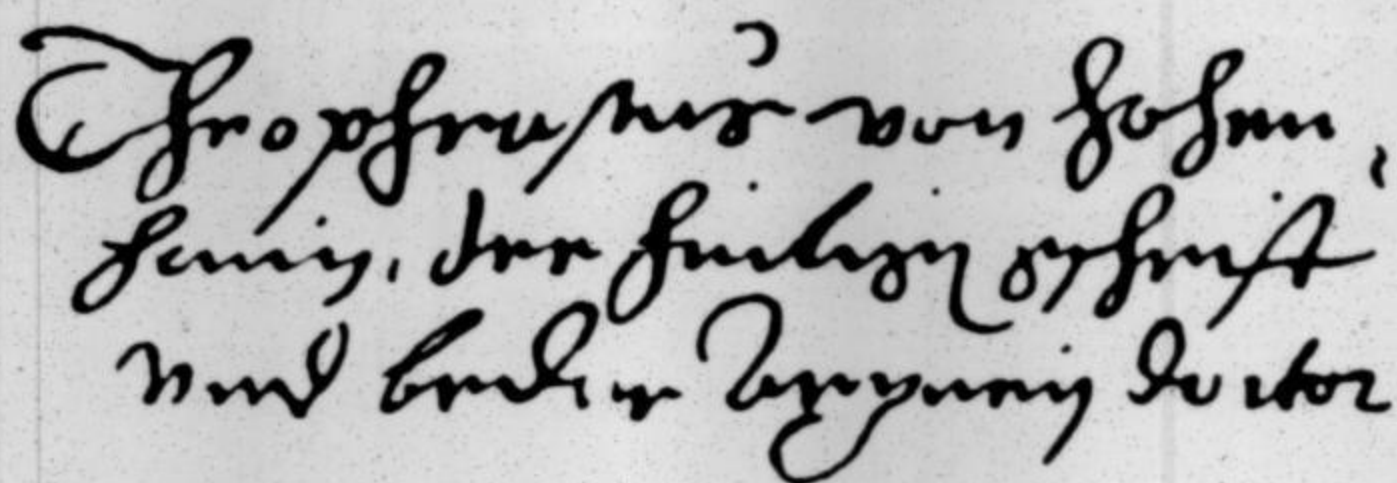 Theophrastus von Hohen
haim, der heiligen gschrift
vnd beder Artzney doctor